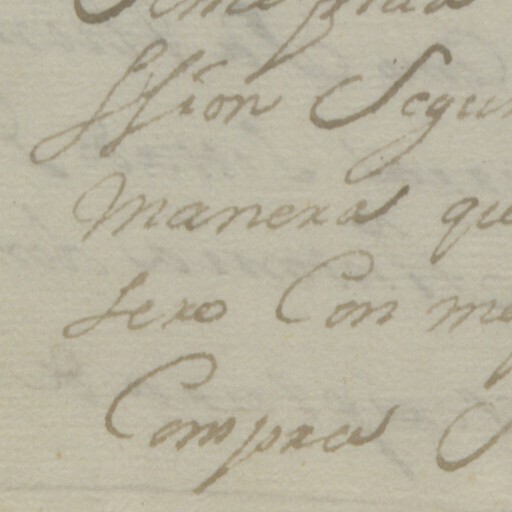 ssion Segun
manera que
sero Con me
Compra